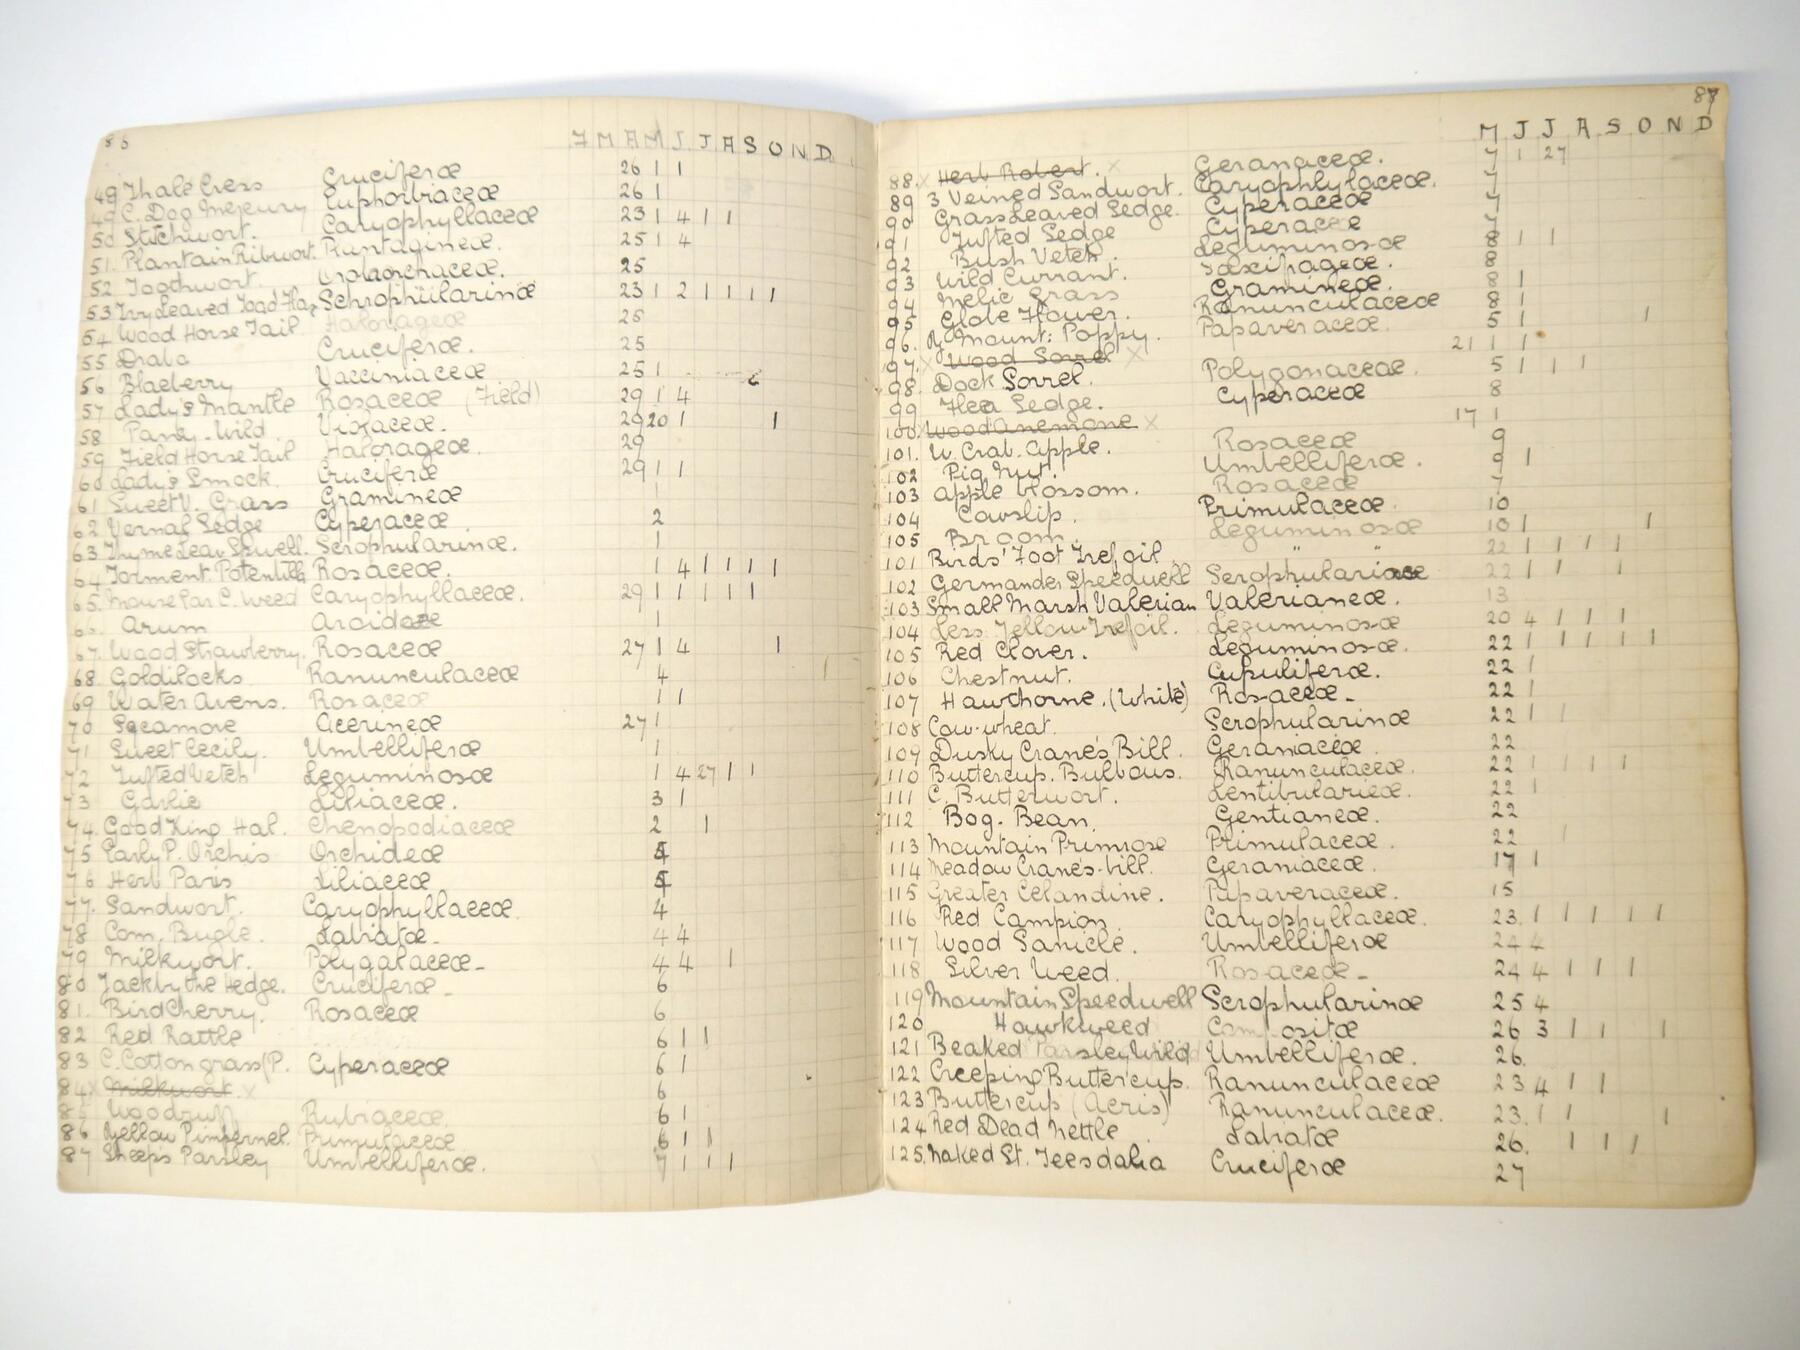 86
F M A M J J A S O N D
49 Thale Cress Cruciferæ 26 1 1
49 C. Dog Mercury Euphorbiaceæ 26 1
50 Stitchwort. Caryophyllaceæ 23 1 4 1 1
51. Plantain Ribwort. Plantagineæ. 25 1 4
52. Toothwort. Orobanchaceæ. 25
53 Ivy Leaved Toad Flax Schrophularinæ 23 1 2 1 1 1 1
54 Wood Horse Tail Halorageæ 25
55 Draba Cruciferæ. 25
56 Blaeberry Vacciniaceæ 25 1
57 Lady's Mantle Rosaceæ (Field) 29 1 4
58 Pansy-Wild Violaceæ. 29 20 1 1
59 Field Horse Tail Halorageæ. 29
60 Lady's Smock. Cruciferæ 29 1 1
61 Sweet V. Grass Gramineæ 1
62 Vernal Sedge Cyperaceæ. 2
63 Thyme Leav Spwell. Scrophularinæ. 1
64 Torment. Potentilla Rosaceæ. 1 4 1 1 1 1
65. Mouse Ear C. Weed Caryophyllaceæ. 29 1 1 1 1 1
66. Arum 1
67. Wood Strawberry. Rosaceæ 27 1 4 1
68. Goldilocks Ranunculaceæ 4
69 Water Avens. Rosaceæ 1 1
70 Sycamore Acerineæ 27 1
71 Sweet Cecily. Umbelliferæ 1
72 Tufted Vetch Leguminosæ 1 4 27 1 1
73 Garlic Liliaceæ. 3 1
74. Good King Hal. Chenopodiaceæ 2 1
75 Early P. Orchis Orchideæ 4
76 Herb Paris Liliaceæ
77. Sandwort. Caryophyllaceæ. 4
78 Com. Bugle. Labiatæ- 4 4
79 Milkwort. Polygalaceæ- 4 4 1
80 Jack by the Hedge. Cruciferæ- 6
81. Bird Cherry. Rosaceæ 6
82 Red Rattle 6 1 1
83 C. Cotton grass (P. Cyperaceæ 6 1
84. x Milkwort x 6
85 Woodruff Rubiaceæ. 6 1
86 Yellow Pimpernel. Primulaceæ 6 1 1
87 Sheeps Parsley Umbelliferæ. 7 1 1 1
87
M J J A S O N D
88. x Herb Robert. x Geranaceæ. 7 1 27
89 3 Veined Sandwort. Caryophlylaceæ. 7
90 Grass Leaved Sedge. Cyperaceæ 7
91 Tufted Sedge Cyperaceæ 7
92 Bush Vetch. Leguminosæ 8 1 1
93 Wild Currant. Saxifrageæ. 8
94 Melic Grass Gramineæ. 8 1
95 Globe Flower. Ranunculaceæ 8 1
96. Mount: Poppy. Papaveraceæ. 5 1 1
97. x Wood Sorrel x 21 1 1
98. Dock Sorrel. Polygonaceæ. 5 1 1 1
99 Flea Sedge. Cyperaceæ 8
100. x Wood Anemone x 17 1
101. W. Crab. Apple. Rosaceæ 9
102 Pig Nut. Umbelliferæ. 9 1
103 Apple blossom. Rosaceæ 7
104 Cowslip. Primulaceæ 10
105 Broom. Leguminosæ 10 1 1
101 Birds' Foot Trefoil " " 22 1 1 1 1
102 Germander Speedwell Scrophulariaceæ 22 1 1 1
103 Small Marsh Valerian Valerianeæ. 13
104 Less Yellow Trefoil. Leguminosæ 20 4 1 1 1
105 Red Clover. Leguminosæ. 22 1 1 1 1 1
106 Chestnut. Cupuliferæ. 22 1
107 Hawthorne. (White) Rosaceæ- 22 1
108 Cow-wheat. Scrophularinæ 22 1 1
109 Dusky Crane's Bill. Geraniaceæ. 22
110 Buttercup. Bulbous. Ranunculaceæ. 22 1 1 1 1
111 C. Butterwort. Lentibularieæ. 22 1
112 Bog-Bean. Gentianeæ. 22
113 Mountain Primrose Primulaceæ. 22 1
114 Meadow Crane's-bill. Geraniaceæ. 17 1
115 Greater Celandine. Papaveraceæ. 15
116 Red Campion Caryophyllaceæ. 23. 1 1 1 1 1
117 Wood Sanicle. Umbelliferæ 24 4
118 Silver Weed. Rosaceæ- 24 4 1 1 1
119 Mountain Speedwell Scrophularinæ 25 4
120 Hawkweed Compositæ 26 3 1 1 1
121 Beaked Parsley Wild Umbelliferæ. 26.
122 Creeping Buttercup. Ranunculaceæ 23 4 1 1
123 Buttercup (Acris) Ranunculaceæ. 23. 1 1 1
124 Red Dead Nettle Labiatæ 26. 1 1 1
125. Naked St. Teesdalia Cruciferæ 27